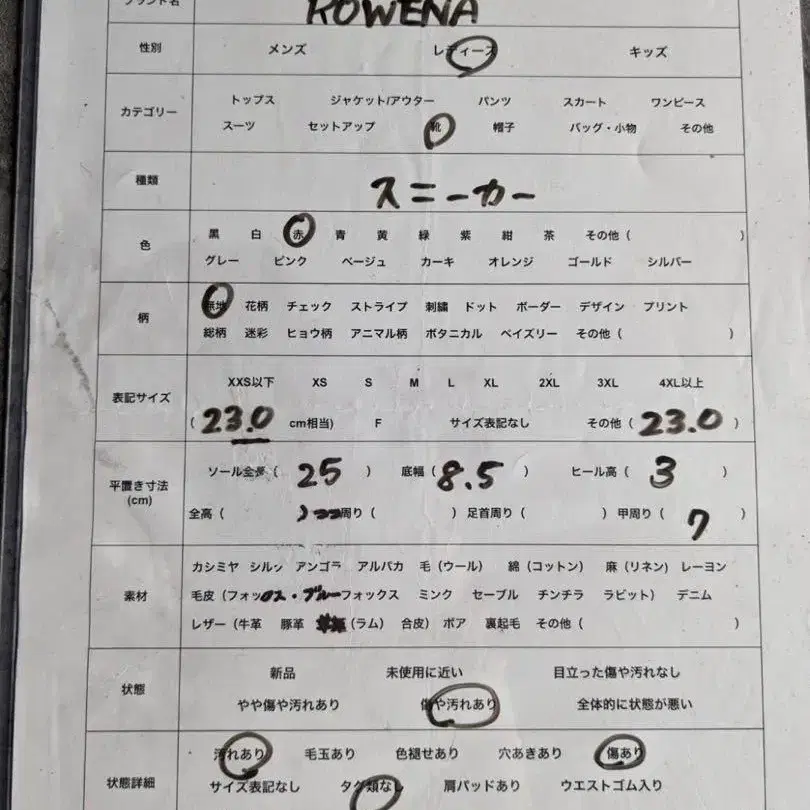 ブランド名 ROWENA
性別 メンズ レディース キッズ
カテゴリー トップス ジャケット/アウター パンツ スカート ワンピース
スーツ セットアップ 靴 帽子 バッグ・小物 その他
種類 スニーカー
色 黒 白 赤 青 黄 緑 紫 紺 茶 その他 ( )
グレー ピンク ベージュ カーキ オレンジ ゴールド シルバー
柄 無地 花柄 チェック ストライプ 刺繍 ドット ボーダー デザイン プリント
総柄 迷彩 ヒョウ柄 アニマル柄 ボタニカル ペイズリー その他 ( )
表記サイズ XXS以下 XS S M L XL 2XL 3XL 4XL以上
( 23.0 cm相当) F サイズ表記なし その他 ( 23.0 )
平置き寸法 (cm) ソール全長 ( 25 ) 底幅 ( 8.5 ) ヒール高 ( 3 )
全高 ( ) 周り ( ) 足首周り ( ) 甲周り ( 7 )
素材 カシミヤ シルク アンゴラ アルパカ 毛 (ウール) 綿 (コットン) 麻 (リネン) レーヨン
毛皮 (フォックス・ブルーフォックス ミンク セーブル チンチラ ラビット) デニム
レザー (牛革 豚革 (ラム) 合皮) ボア 裏起毛 その他 ( )
状態 新品 未使用に近い 目立った傷や汚れなし
やや傷や汚れあり 傷や汚れあり 全体的に状態が悪い
状態詳細 汚れあり 毛玉あり 色褪せあり 穴あきあり 傷あり
サイズ表記なし タグ類なし 肩パッドあり ウエストゴム入り